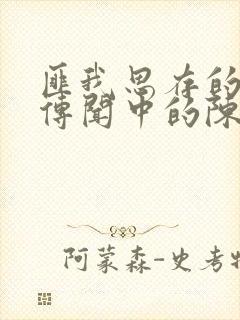 匪我思存的
傳聞中的陳
阿蒙森-史考特